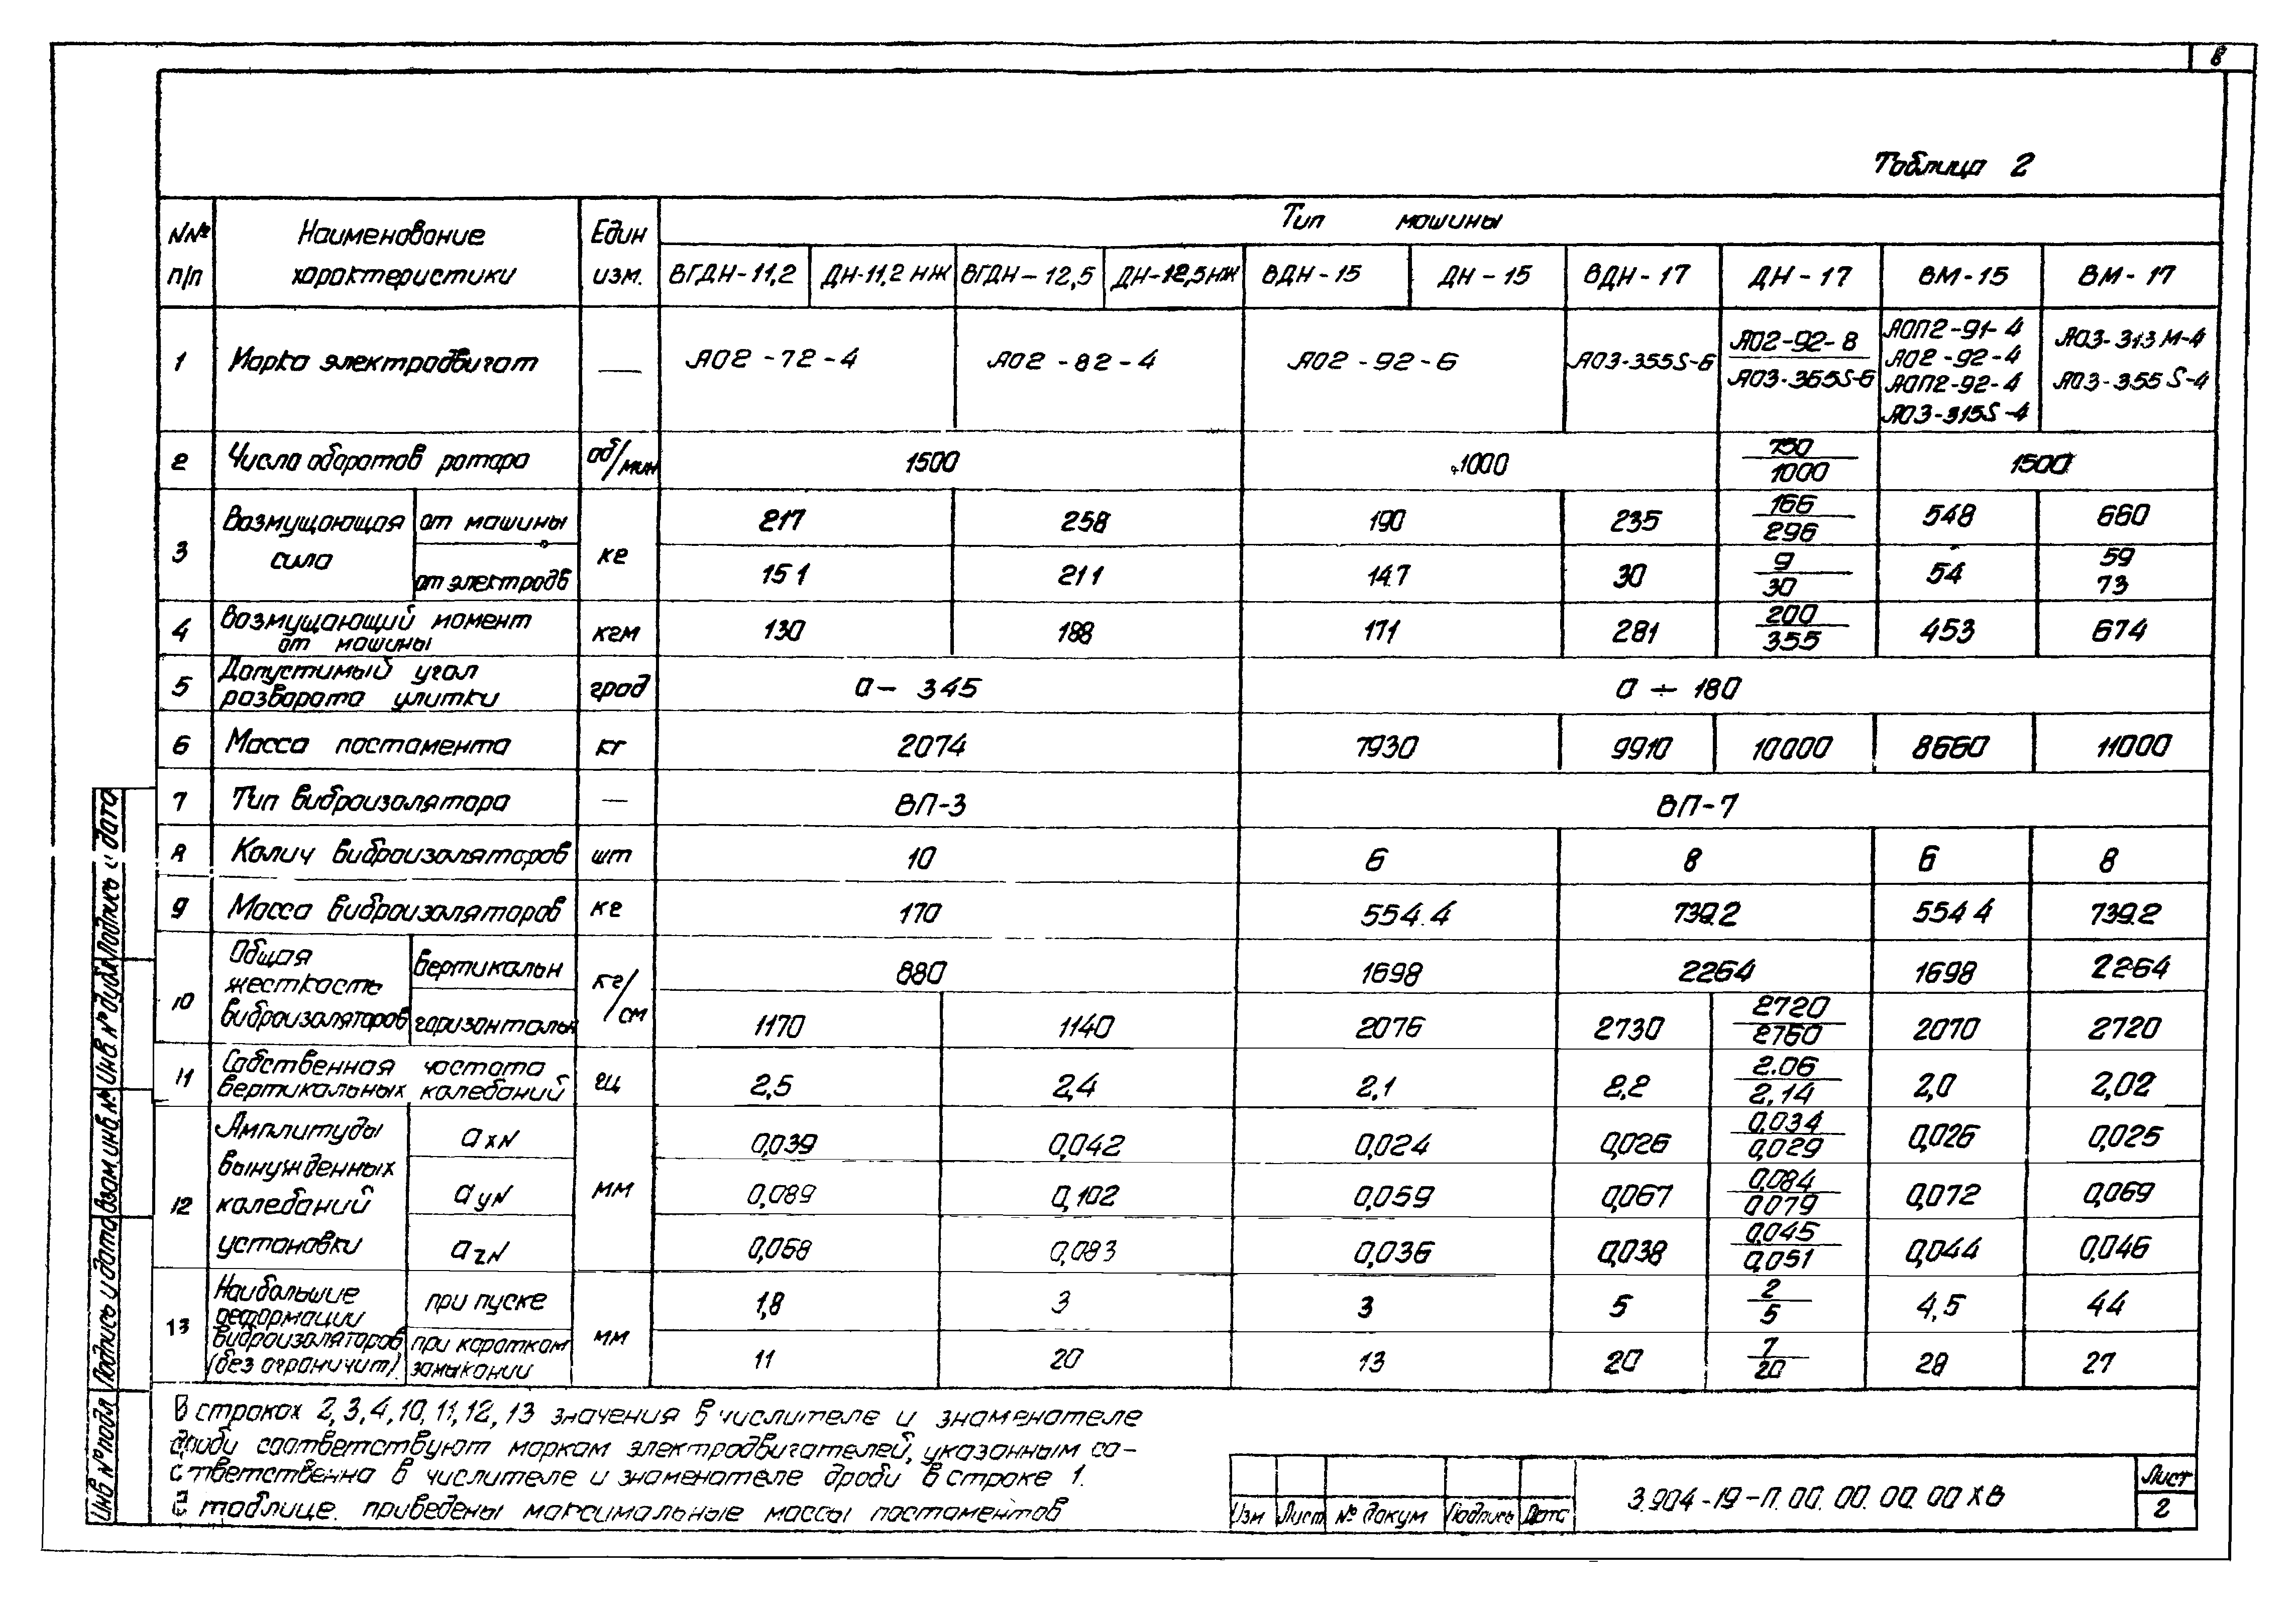 8
Таблица 2
NN№ п/п Наименование характеристики Един изм. Тип машины
ВГДН-11,2 ДН-11,2 НЖ ВГДН-12,5 ДН-12,5НЖ ВДН-15 ДН-15 ВДН-17 ДН-17 ВМ-15 ВМ-17
1 Марка электродвигат — АО2-72-4 АО2-82-4 АО2-92-6 АО3-355S-6 АО2-92-8 / АО3-365S-6 АОП2-91-4 АО2-92-4 АОП2-92-4 АО3-315S-4 АО3-313М-4 АО3-355S-4
2 Числа оборотов ротора об/мин 1500 1000 750/1000 1500
3 Возмущающая сила от машины кг 217 258 190 235 166/296 548 660
от электродв 151 211 14.7 30 9/30 54 59 73
4 Возмущающий момент от машины кгм 130 188 171 281 200/355 453 674
5 Допустимый угол разворота улитки град 0 — 345 0 ÷ 180
6 Масса постамента кг 2074 7930 9910 10000 8660 11000
7 Тип виброизолятора — ВП-3 ВП-7
8 Колич виброизоляторов шт 10 6 8 6 8
9 Масса виброизоляторов кг 170 554.4 739.2 554 4 739.2
10 Общая жесткость виброизоляторов вертикальн кг/см 880 1698 2264 1698 2264
горизонтальн 1170 1140 2076 2730 2720/2760 2070 2720
11 Собственная частота вертикальных колебаний гц 2,5 2,4 2,1 2,2 2.06/2,14 2,0 2,02
12 Амплитуды вынужденных колебаний установки aхN мм 0,039 0,042 0,024 0,026 0,034/0,029 0,026 0,025
aуN 0,089 0,102 0,059 0,067 0,084/0,079 0,072 0,069
azN 0,068 0,083 0,036 0,038 0,045/0,051 0,044 0,046
13 Наибольшие деформации виброизоляторов (без ограничит) при пуске мм 1,8 3 3 5 2/5 4,5 44
при коротком замыкании 11 20 13 20 7/20 28 27
В строках 2,3,4,10,11,12,13 значения в числителе и знаменателе
дроби соответствуют маркам электродвигателей, указанным со-
ответственно в числителе и знаменателе дроби в строке 1.
В таблице приведены максимальные массы постаментов
Изм Лист № докум Подпись Дата
3.904-19-П.00.00.00.00ХВ
Лист
2
Инв № подл Подпись и дата Взам инв.№ Инв.№ дубл Подпись и дата